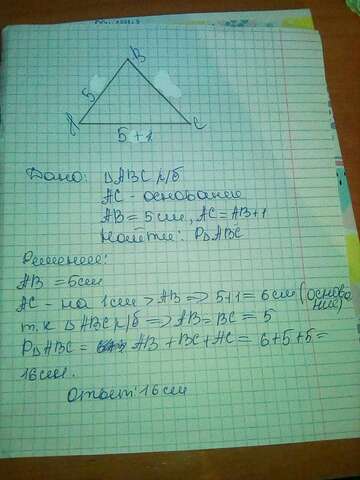 B
5
A
5+1
C
Дано: ΔABC р/б
AC - основание
AB = 5 см, AC = AB+1
Найти: PΔABC
Решение:
AB = 5см
AC - на 1 см > AB => 5+1 = 6 см (основа
ние)
т.к ΔABC р/б => AB = BC = 5
PΔABC = AB + BC + AC = 6+5+5=
16см.
Ответ: 16 см